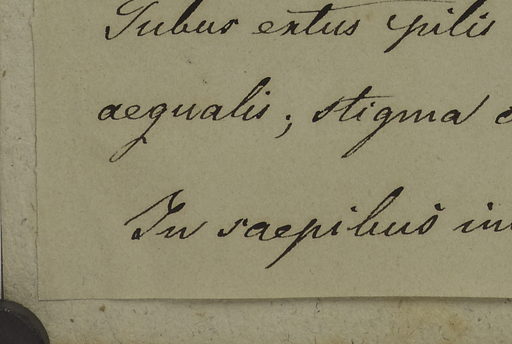 Tubus extus pilis
aequalis; stigma
In saepibus in